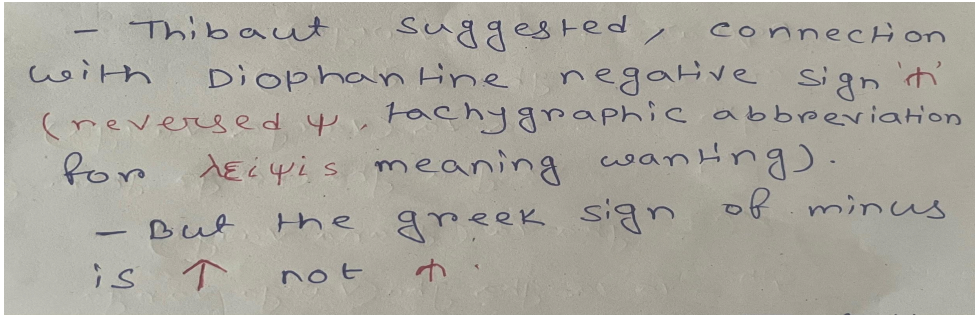 - Thibaut suggested, connection
with Diophantine negative sign '⋔'
(reversed ψ, tachygraphic abbreviation
for λείψis meaning wanting).
- But the greek sign of minus
is ↑ not ⋔.